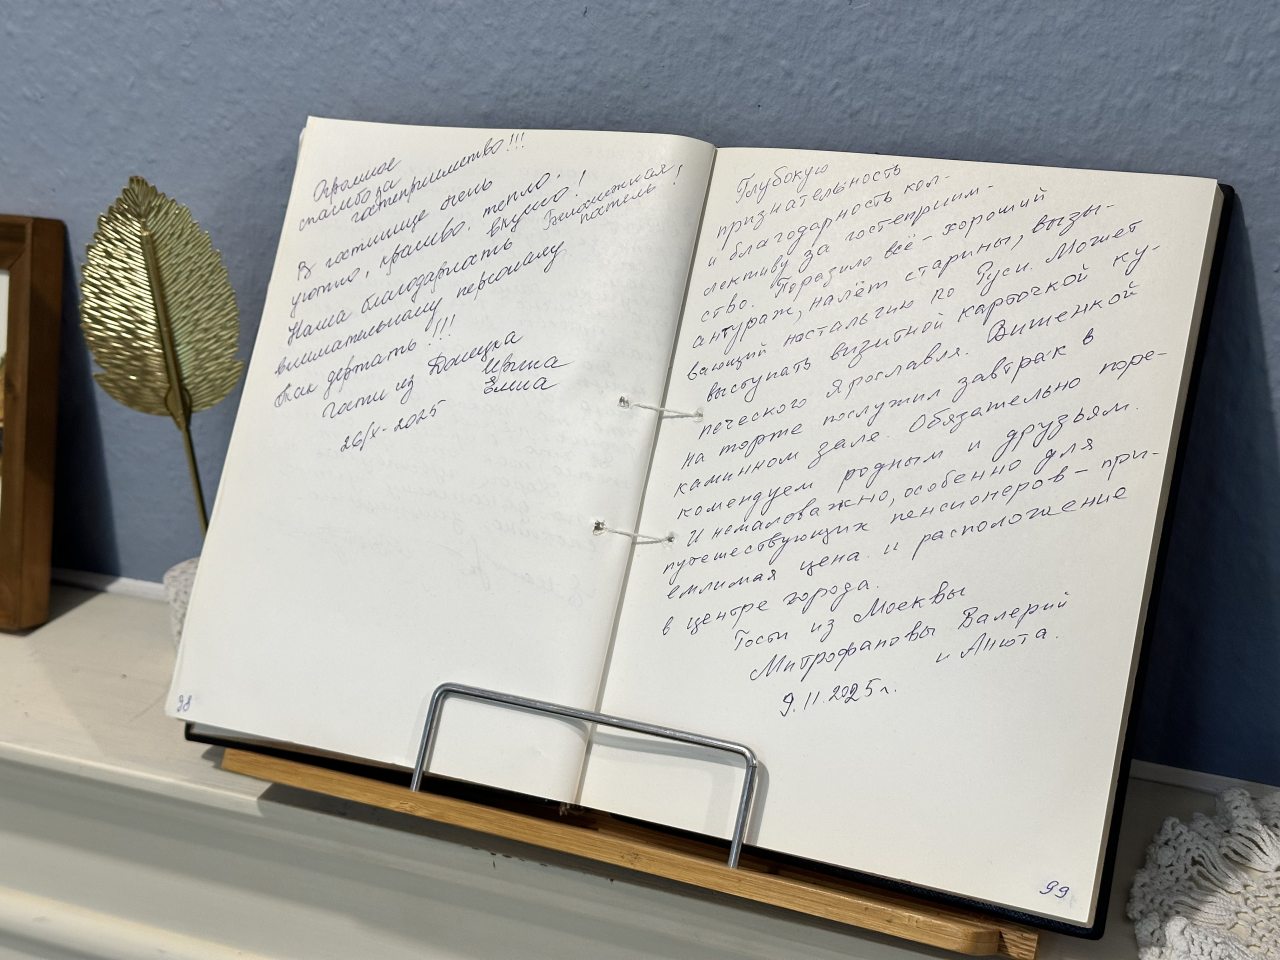 Огромное
спасибо за
гостеприимство!!!
В гостинице очень
уютно, красиво, тепло.
вкусно!
Наша благодарность Белоснежная
постель!
внимательному персоналу
Так держать!!!
Гости из Донецка
Ирина
Елена
26/X-2025
98
Глубокую
признательность
и благодарность кол-
лективу за гостеприим-
ство. Поразило всё - хороший
антураж, налёт старины, вызы-
вающий ностальгию по Руси. Может
выступать визитной карточкой ку-
печеского Ярославля. Вишенкой
на торте послужил завтрак в
каминном зале. Обязательно поре-
комендуем родным и друзьям.
И немаловажно, особенно для
путешествующих пенсионеров - при-
емлимая цена и расположение
в центре города.
Гости из Москвы
Митрофановы Валерий
и Анюта.
9.11.2025г.
99